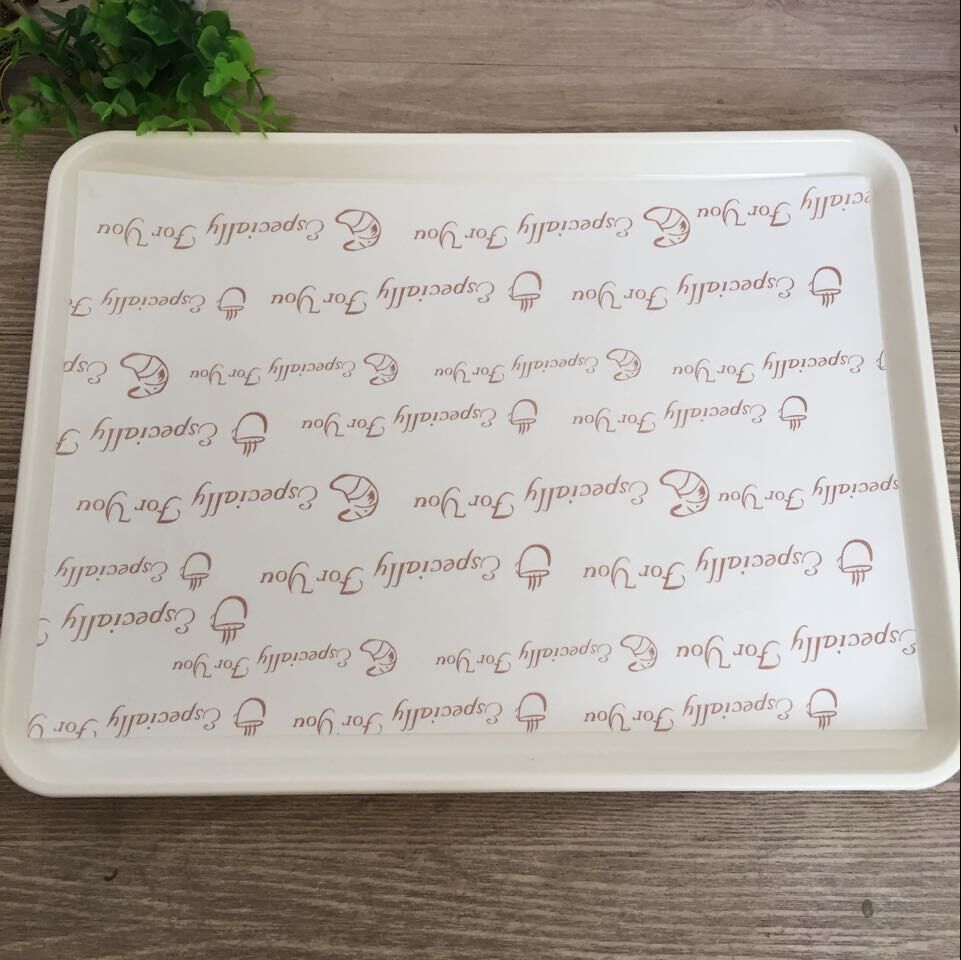 Especially For You Especially For You Especially For
Especially For You Especially For You Especially For You
Especially
Especially For You Especially For You Especially
specially For You Especially For You Especially For You
Especially For You Especially For You Especially F
Especially For You Especially For You Especially For You Esp
Especially For You Especially For You Especially F
ecially For You Especially For You Especially For You